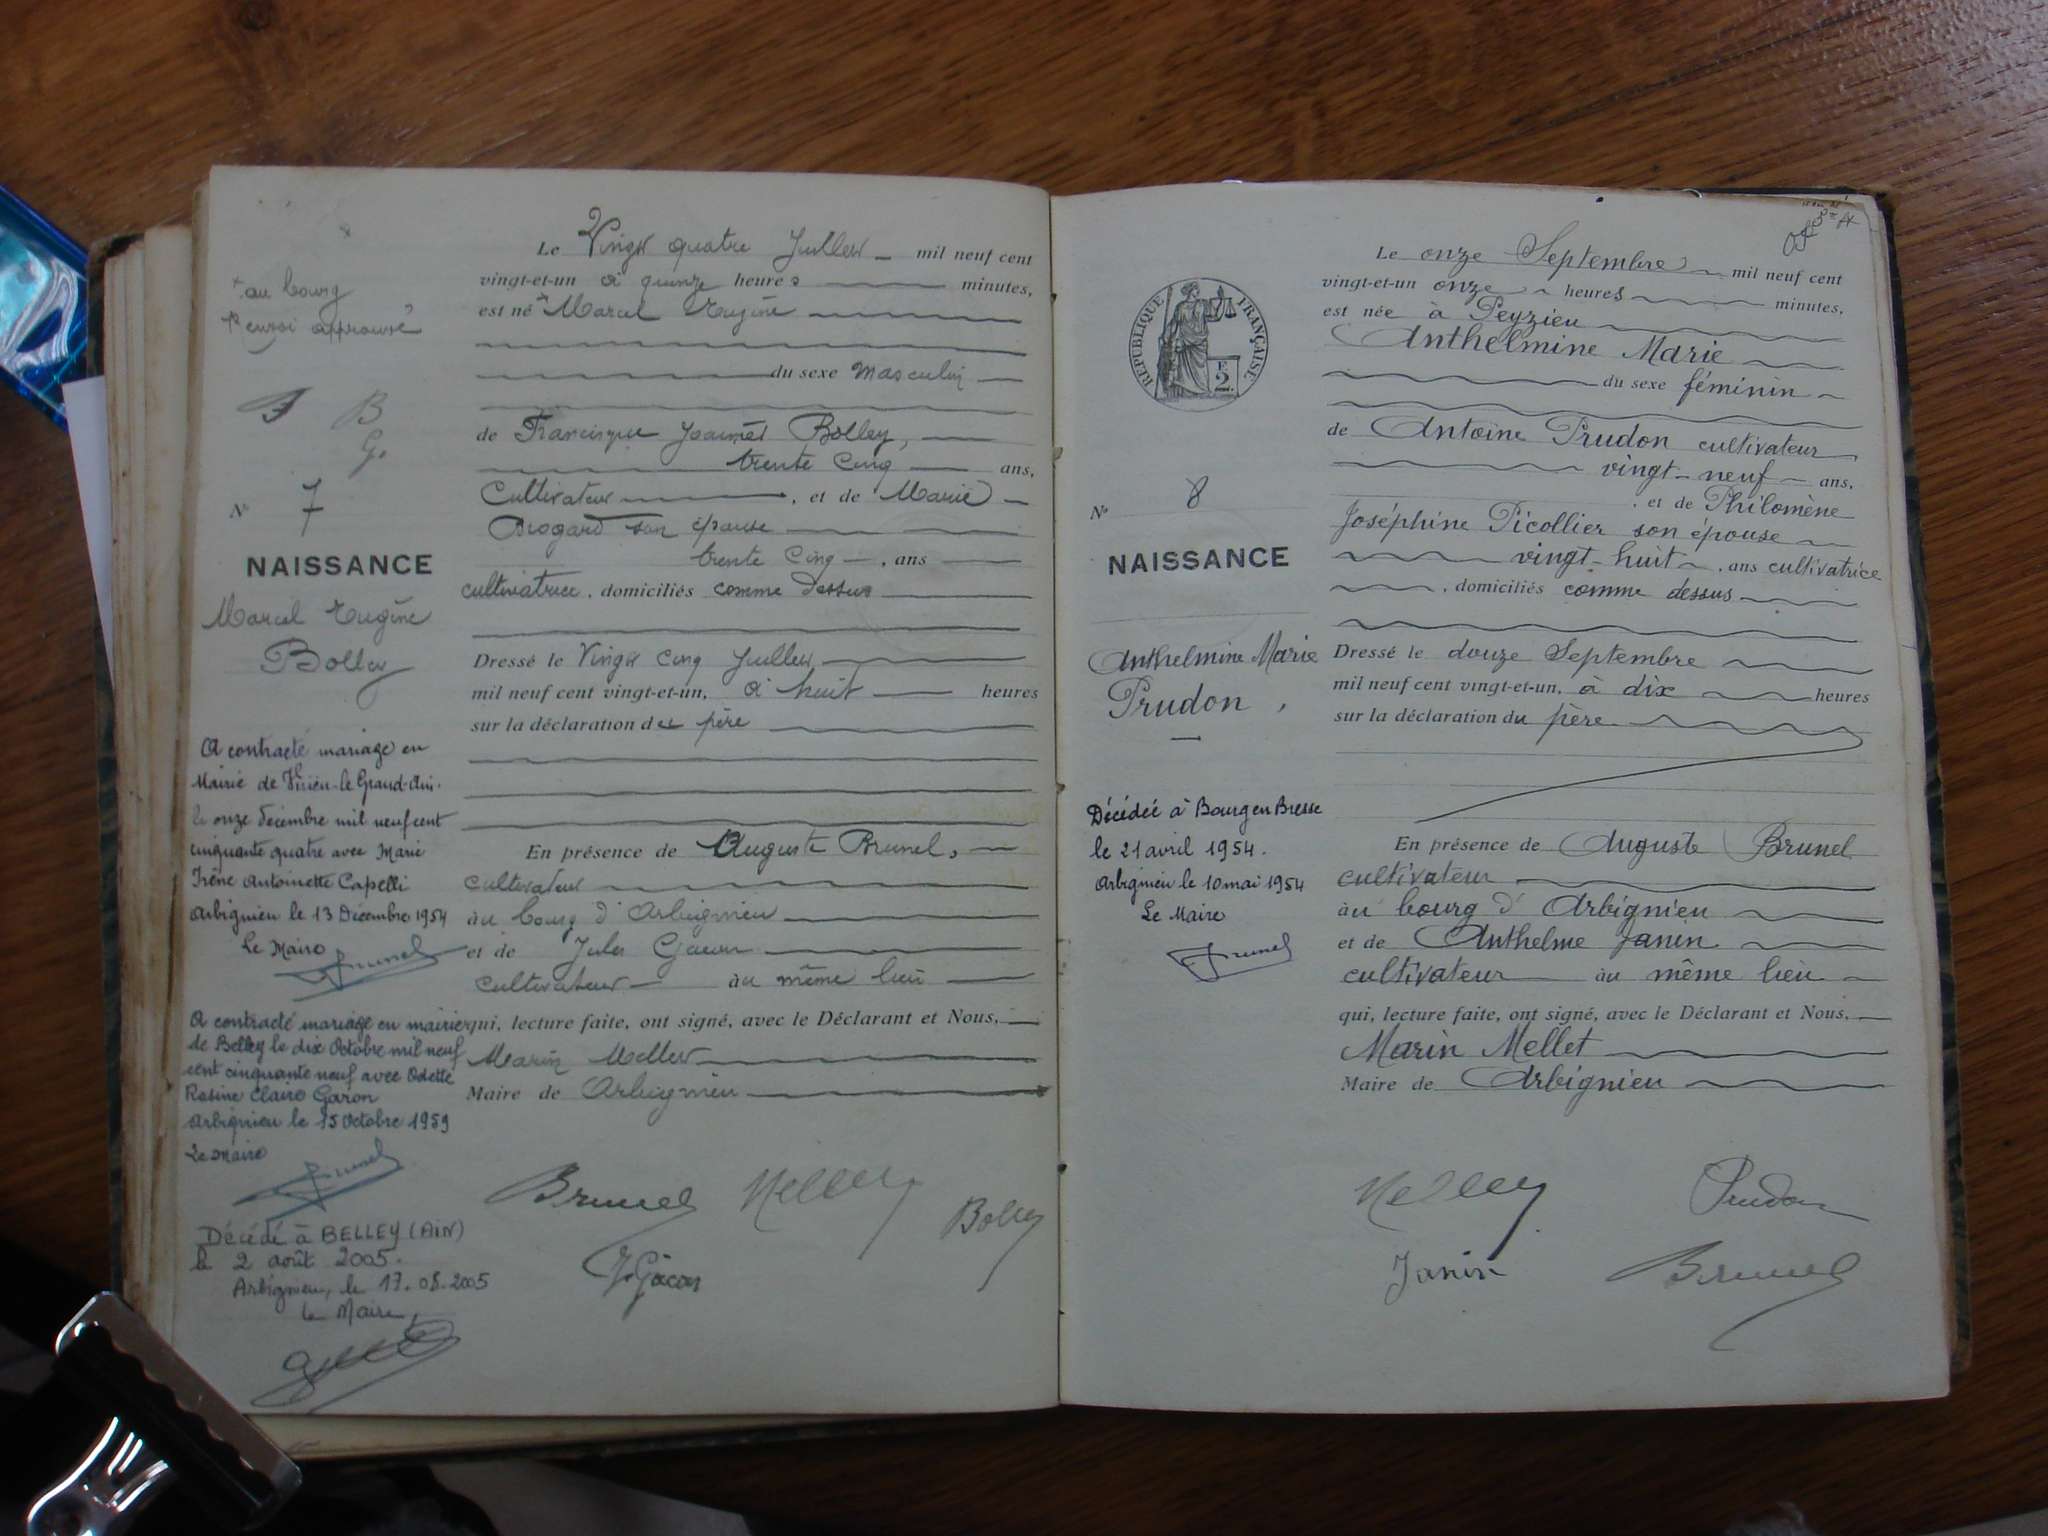 + au bourg
renvoi approuvé
B
G.
N° 7
NAISSANCE
Marcel Eugène
Bolley
A contracté mariage en
Mairie de Virieu-le-Grand-Ain.
le onze Décembre mil neuf cent
cinquante quatre avec Marie
Irène Antoinette Capelli
Arbignieu le 13 Décembre 1954
Le Maire
Brunel
A contracté mariage en mairie
de Belley le dix Octobre mil neuf
cent cinquante neuf avec Odette
Rosine Claire Garon
Arbignieu le 15 Octobre 1959
Le Maire
Brunel
Décédé à BELLEY (AIN)
le 2 août 2005.
Arbignieu, le 17.08.2005
le Maire,
Le Vingt quatre Juillet mil neuf cent
vingt-et-un à quinze heures minutes,
est né + Marcel Eugène
du sexe Masculin
de Francisque Joannès Bolley,
trente cinq ans,
Cultivateur, et de Marie
Brogard son épouse
trente cinq, ans
cultivatrice, domiciliés comme dessus
Dressé le Vingt cinq Juillet
mil neuf cent vingt-et-un, à huit heures
sur la déclaration du père
En présence de Auguste Brunel,
cultivateur
au bourg d'Arbignieu
et de Jules Gacon
Cultivateur au même lieu
qui, lecture faite, ont signé, avec le Déclarant et Nous,
Marin Mellet
Maire de Arbignieu
Brunel Mellet Bolley
J. Gacon
RÉPUBLIQUE FRANÇAISE
F.
2.
N° 8
NAISSANCE
Anthelmine Marie
Prudon,
Décédée à Bourg en Bresse
le 21 avril 1954.
Arbignieu le 10 mai 1954
Le Maire
Brunel
Le onze Septembre mil neuf cent
vingt-et-un onze heures minutes,
est née à Peyzieu
Anthelmine Marie
du sexe féminin
de Antoine Prudon cultivateur
vingt-neuf ans,
, et de Philomène
Joséphine Picollier son épouse
vingt-huit, ans cultivatrice
, domiciliés comme dessus
Dressé le douze Septembre
mil neuf cent vingt-et-un, à dix heures
sur la déclaration du père
En présence de Auguste Brunel
cultivateur
au bourg d'Arbignieu
et de Anthelme Janin
cultivateur au même lieu
qui, lecture faite, ont signé, avec le Déclarant et Nous,
Marin Mellet
Maire de Arbignieu
Mellet Prudon
Janin Brunel